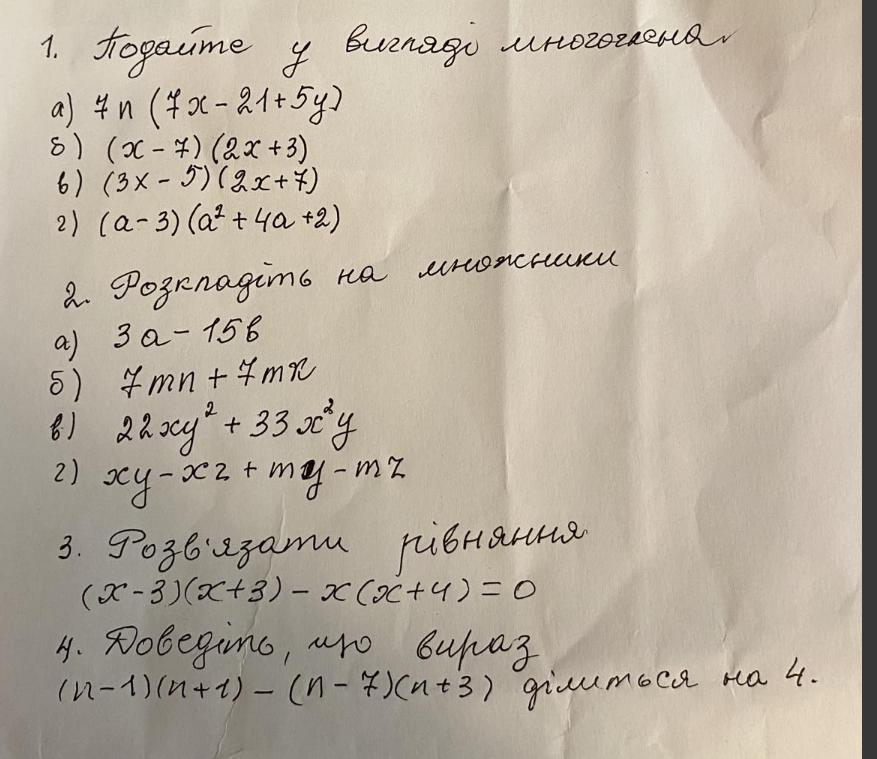 1. Подайте у вигляді многочлена
а) 7n (7x - 21 + 5y)
б) (x - 7)(2x + 3)
в) (3x - 5)(2x + 7)
г) (a - 3)(a² + 4a + 2)
2. Розкладіть на множники
а) 3a - 15b
б) 7mn + 7mk
в) 22xy² + 33x²y
г) xy - xz + my - mz
3. Розв'язати рівняння
(x - 3)(x + 3) - x(x + 4) = 0
4. Доведіть, що вираз
(n - 1)(n + 1) - (n - 7)(n + 3) ділиться на 4.